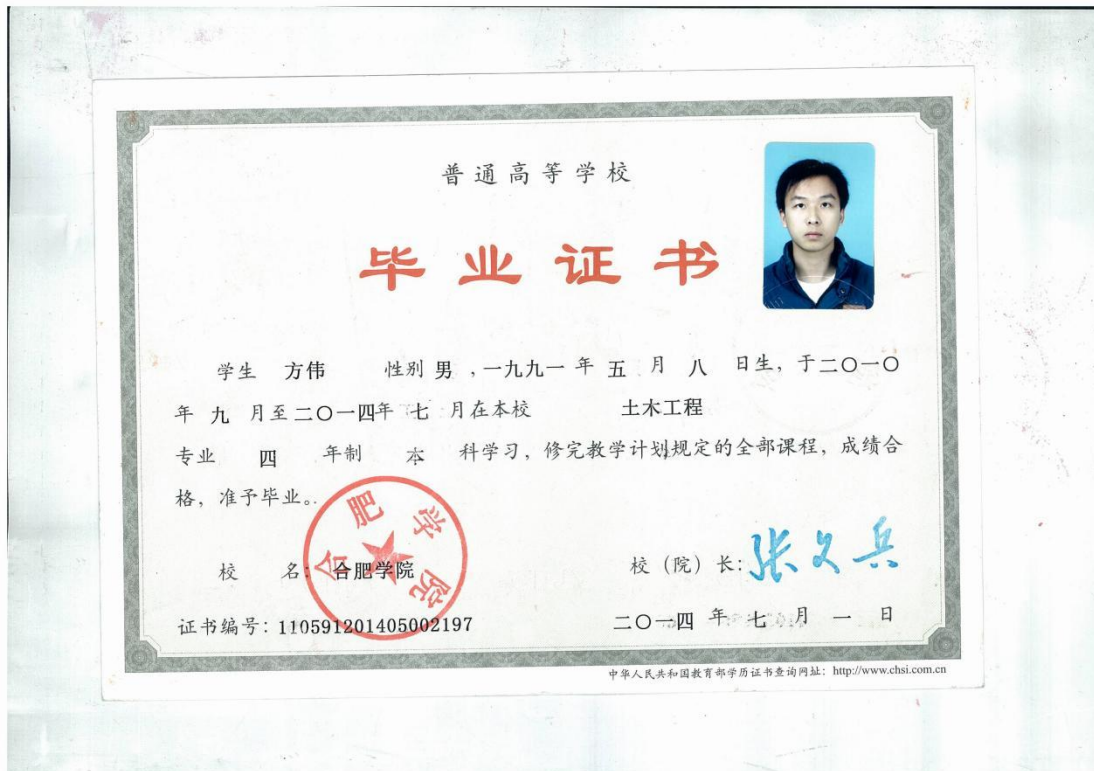 普通高等学校
毕业证书
学生 方伟 性别 男 ,一九九一 年 五 月 八 日生, 于二〇一〇
年 九 月至二〇一四年 七 月在本校 土木工程
专业 四 年制 本 科学习, 修完教学计划规定的全部课程, 成绩合
格, 准予毕业。
合肥学院
校 名: 合肥学院
校（院）长: 张文兵
证书编号: 110591201405002197
二〇一四 年 七 月 一 日
中华人民共和国教育部学历证书查询网址: http://www.chsi.com.cn